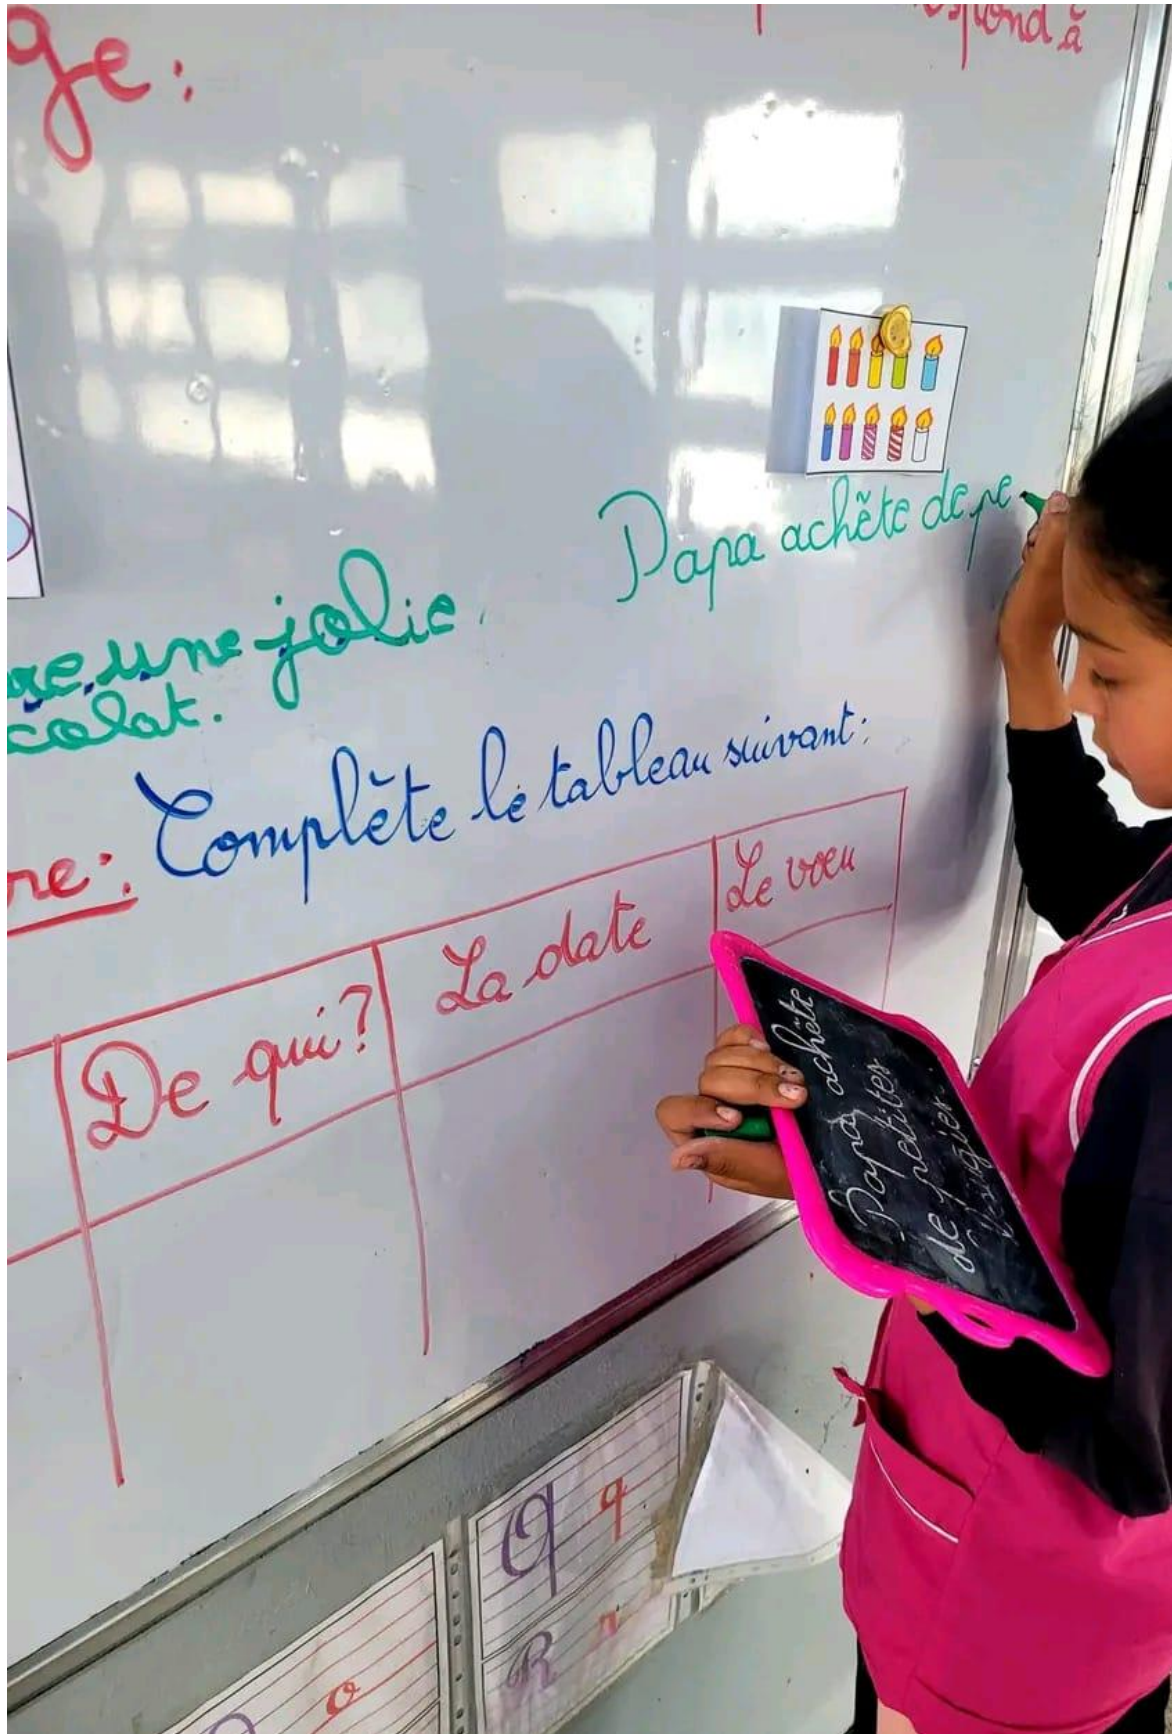 ge:
spond à
Papa achète de pe
re une jolie
colat.
re: Complète le tableau suivant:
De qui? La date Le voeu
Papa achète
de petites
bougies.
Q q
R r
o